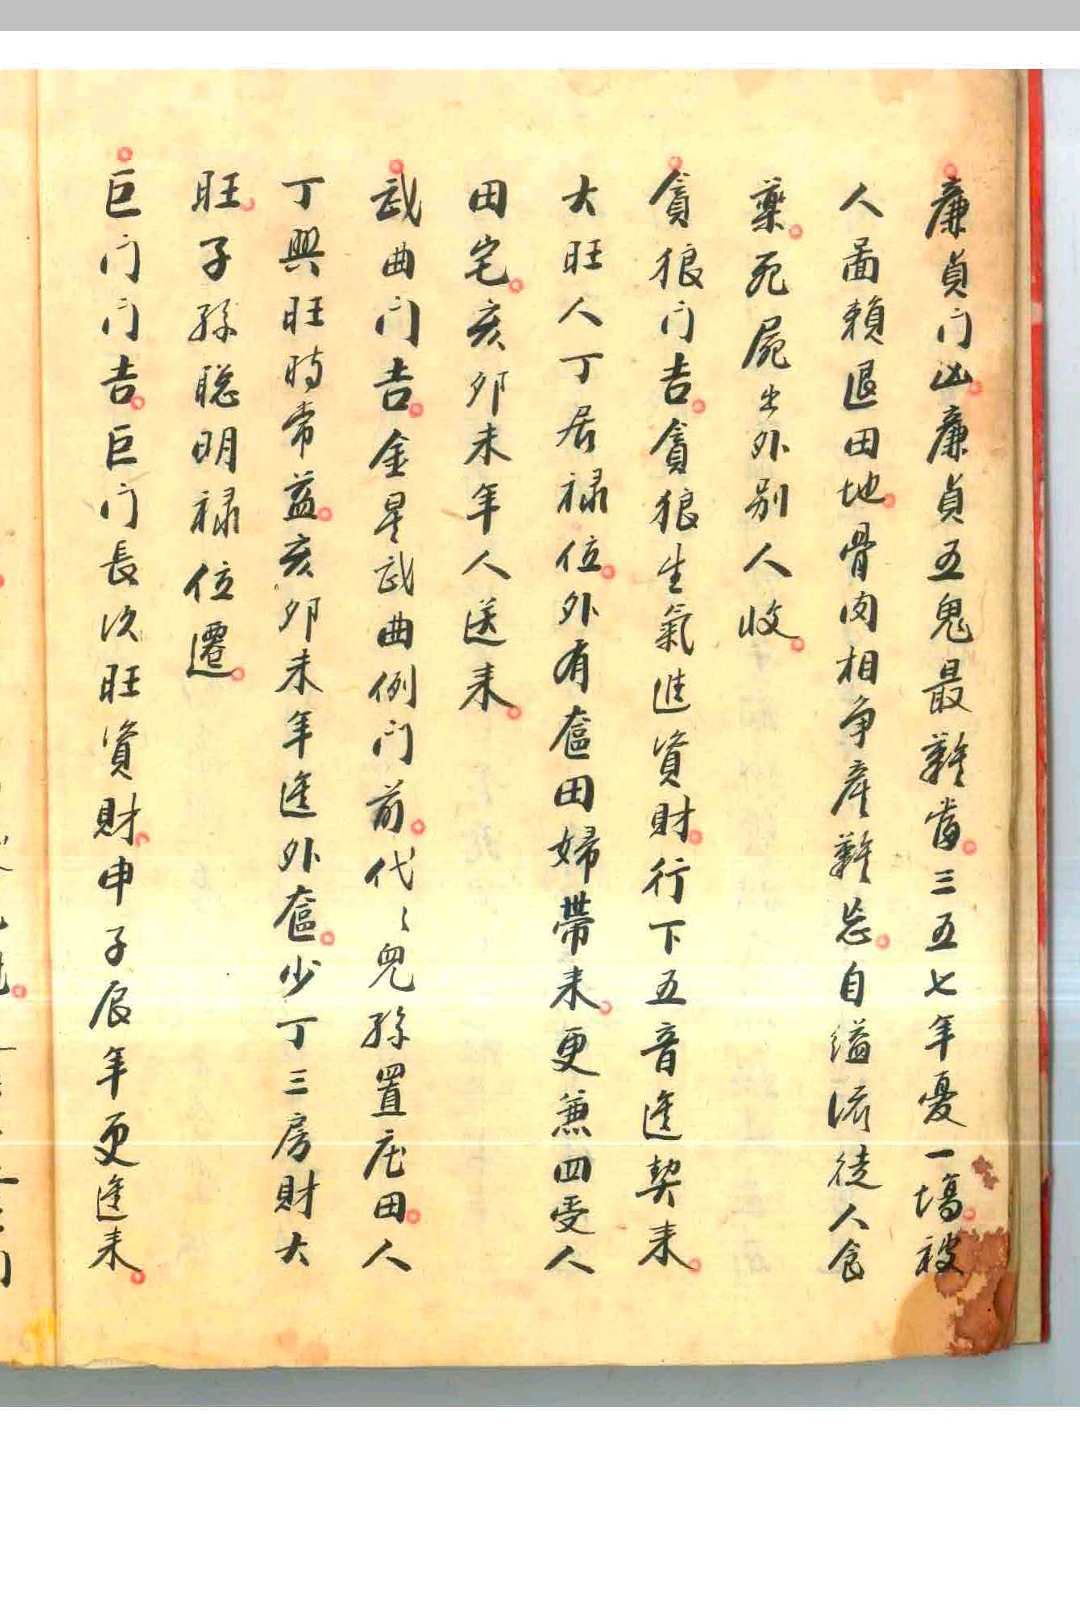 廉貞门凶廉貞五鬼最難當三五七年憂一塲被
人啚賴退田地骨肉相爭産難忘自縊流徒人食
藥死屍出外别人收
貪狼门吉貪狼生氣進資財行下五音進契来
大旺人丁居禄位外有奩田婦帶来更兼四受人
田宅亥夘未年人送来
武曲门吉金星武曲例门前代〻児孫置庄田人
丁興旺時常益亥夘未年進外奩少丁三房財大
旺子孫聡明禄位遷
巨门门吉巨门長次旺資財申子辰年更進来